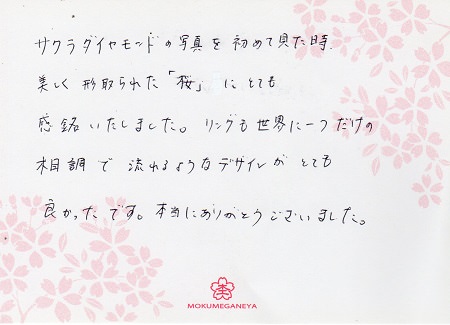 サクラダイヤモンドの写真を初めて見た時
美しく形取られた「桜」にとても
感銘いたしました。リングも世界に一つだけの
木目調で流れるようなデザインがとても
良かったです。本当にありがとうございました。
MOKUMEGANEYA